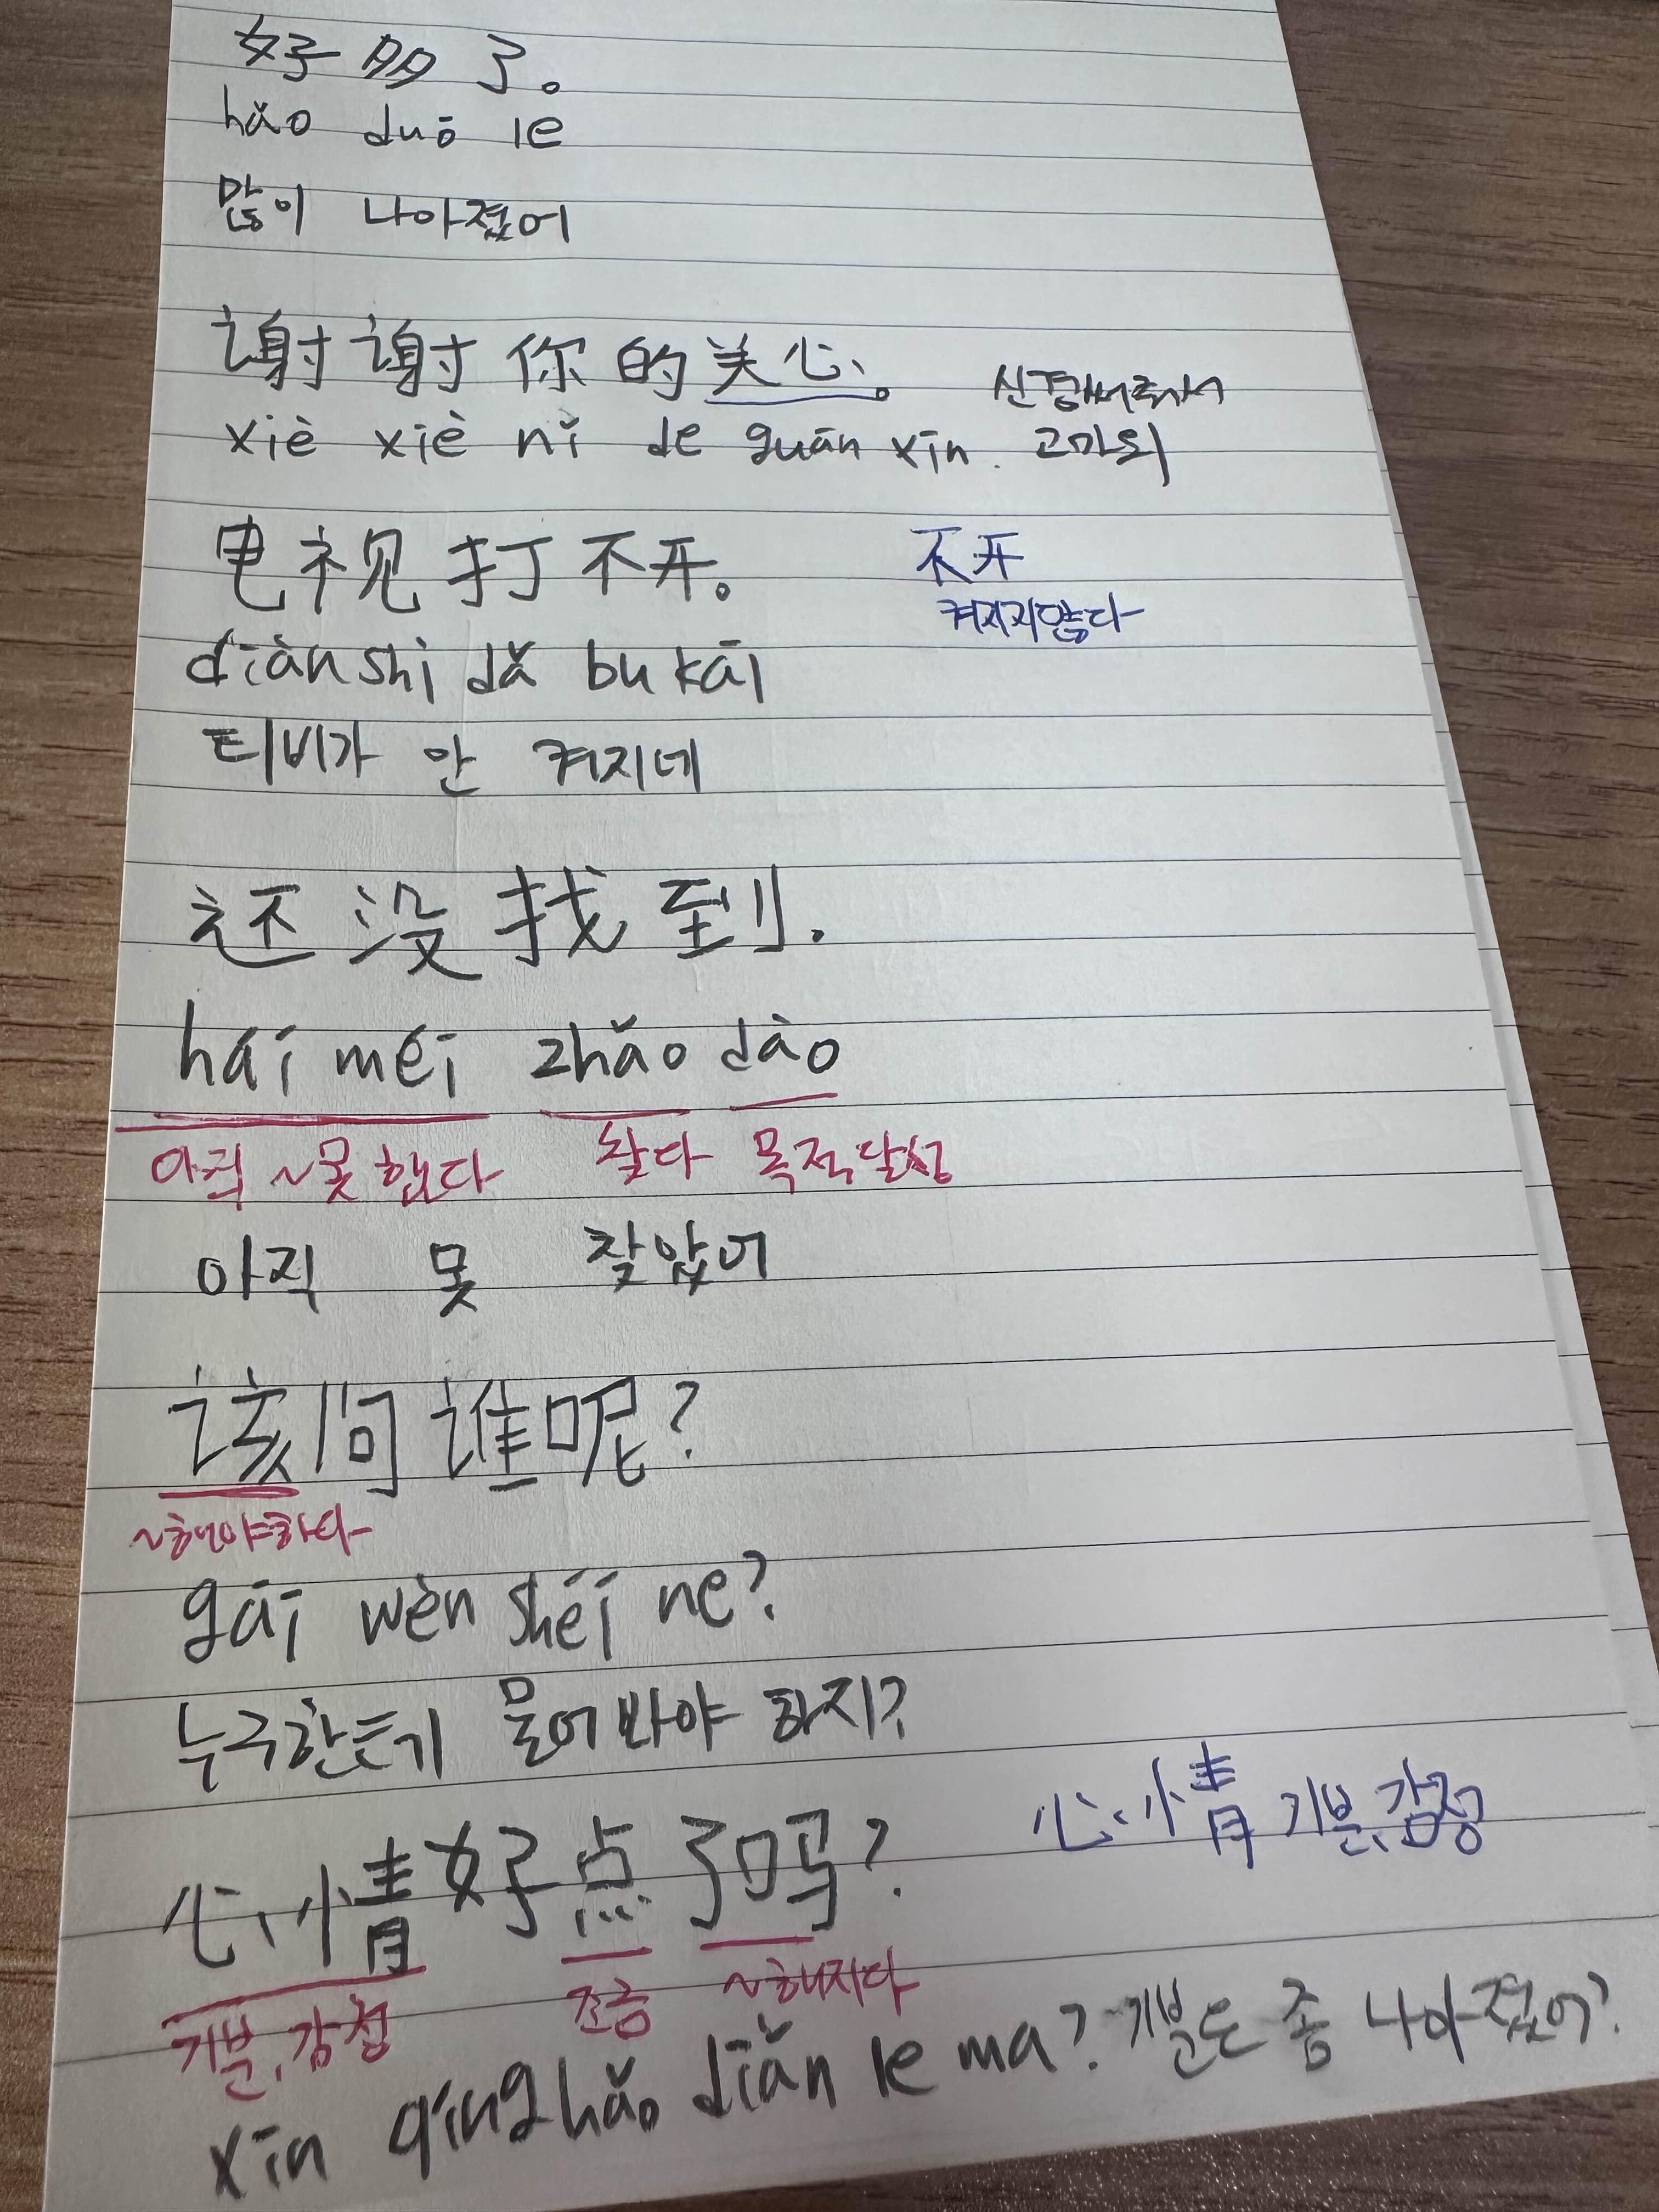 好多了。
hǎo duō le
많이 나아졌어
谢谢你的关心。 신경써줘서
xiè xiè nǐ de guān xīn. 고마워
电视打不开。 不开
켜지지않다
diàn shì dǎ bu kāi
티비가 안 켜지네
还没找到.
hái méi zhǎo dào
아직 ~못했다 찾다 목적달성
아직 못 찾았어
该问谁呢?
~해야하다
gāi wèn shéi ne?
누구한테 물어봐야 하지?
心情 기분, 감정
心情好点了吗?
기분, 감정 조금 ~해지다
xīn qíng hǎo diǎn le ma? 기분은 좀 나아졌어?